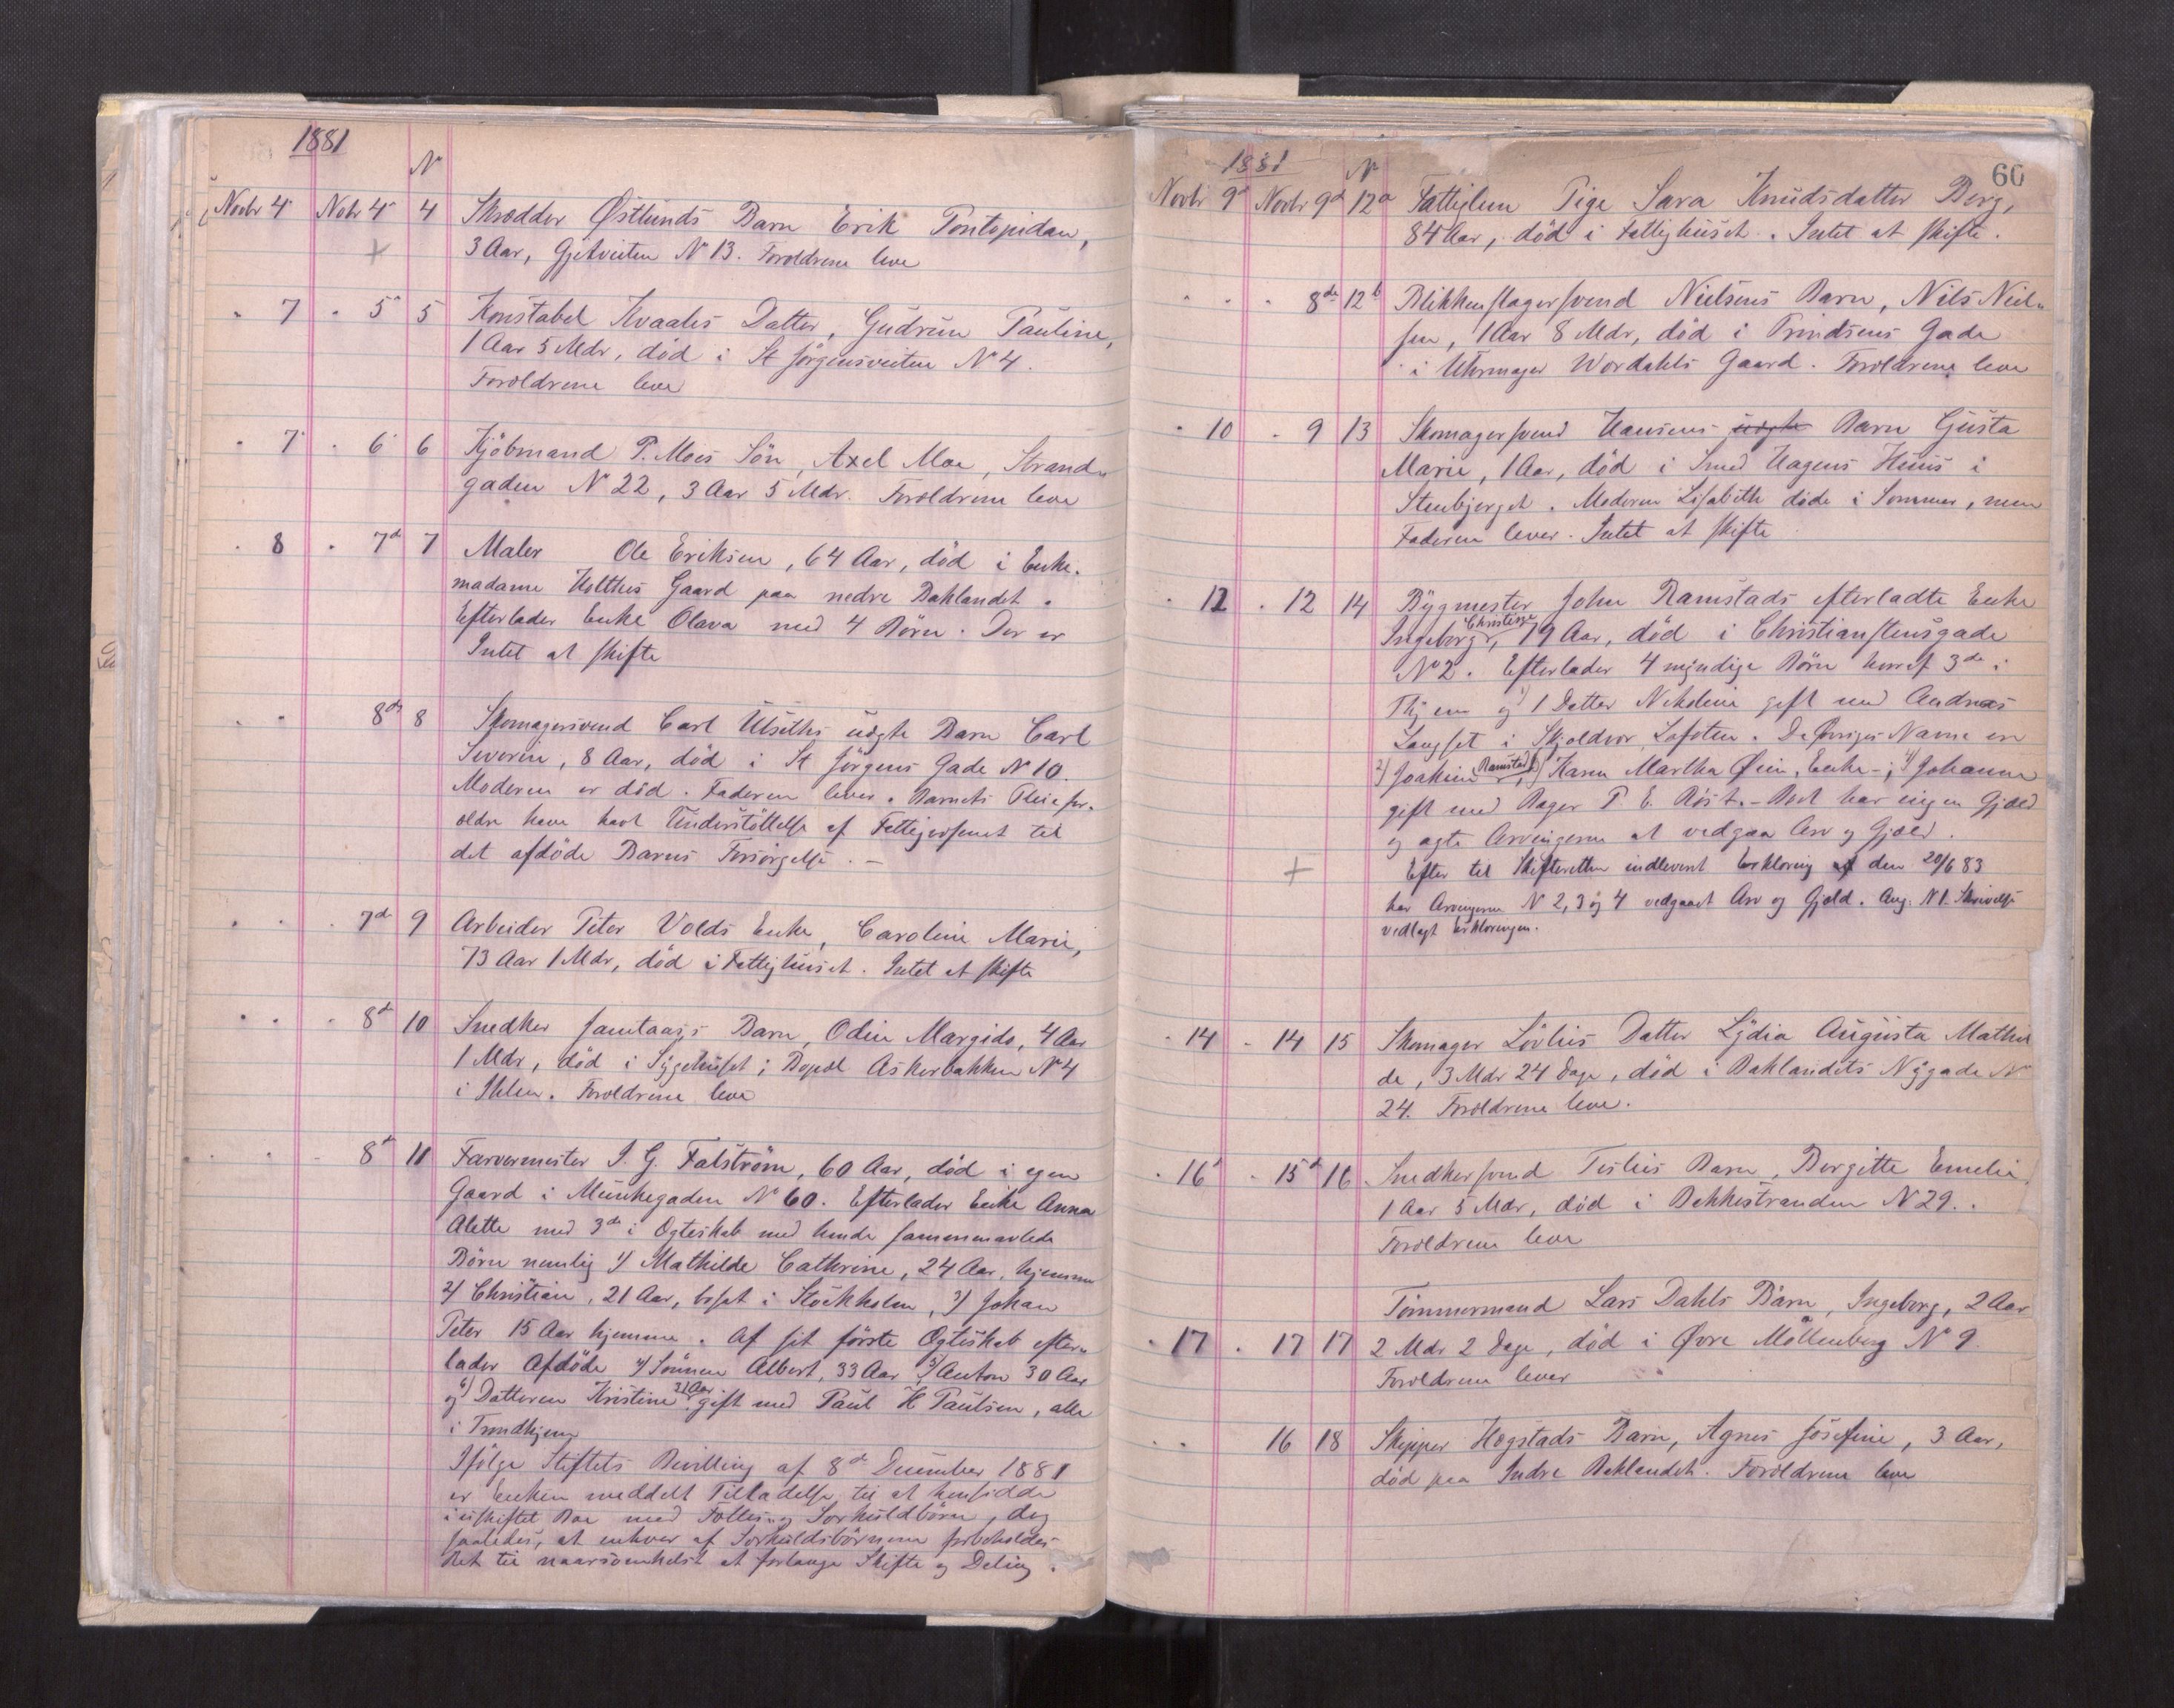 1881
N
Novbr 4 Nvbr 4 4 Skrædder Østlunds Barn Erik Pontopidan,
3 Aar, Gjetveiten N 13. Forældrene leve
" 7 " 5 5 Konstabel Kvaales Datter, Gudrun Pauline,
1 Aar 5 Mdr, död i St Jörgensveiten N 4.
Forældrene leve
" 7 " 6 6 Kjöbmand P. Moes Sön, Axel Moe, Strand-
gaden N 22, 3 Aar 5 Mdr. Forældrene leve
" 8 " 7de 7 Maler Ole Eriksen, 64 Aar, död i Enke-
madame Holthes Gaard paa nedre Baklandet.
Efterlader Enke Olava med 4 Börn. Der er
Intet at skifte
" " 8de 8 Skomagersvend Carl Ulseths uægte Barn Carl
Severin, 8 Aar, död i St Jörgens Gade N 10.
Moderen er död. Faderen lever. Barnets Pleiefor-
ældre have havt Understöttelse af Fattigvæsenet til
det afdöde Barns Forsörgelse. -
" " " 7de 9 Arbeider Peter Volds Enke, Caroline Marie,
73 Aar 1 Mdr, död i Fattighuset. Intet at skifte
" " " 8de 10 Snedker Jamtaas's Barn, Odin Margido, 4 Aar
1 Mdr, död i Sygehuset; Bopæl Askerbakken N 4
i Ihlen. Forældrene leve
" " " 8de 11 Farvermester J. G. Falström, 60 Aar, död i egen
Gaard i Munkegaden N 60. Efterlader Enke Anna
Alette med 3de i Ægteskab med hende sammenavlede
Börn nemlig 1) Mathilde Cathrine, 24 Aar, hjemme
2) Christian, 21 Aar, bosat i Stockholm, 3) Johan
Peter 15 Aar hjemme. Af sit förste Ægteskab efter-
lader Afdöde 4) Sönnen Albert, 33 Aar, 5) Anton 30 Aar
og 6) Datteren Kristine 31 Aar gift med Paul H Paulsen, alle
i Trondhjem
Ifölge Stiftets Bevilling af 8de December 1881
er Enken meddelt Tilladelse til at hensidde
i uskiftet Boe med Fælles og Særkuldbörn, dog
saaledes, at enhver af Særkuldsbörnene forbeholdes
Ret til naarsomhelst at forlange Skifte og Deling.
60
1881
N
Novbr 9d Novbr 9d 12a Fattiglem Pige Sara Knudsdatter Berg,
84 Aar, död i Fattighuset. Intet at skifte.
" " " 8de 12b Blikkenslagersvend Nielsens Barn, Nils Niel-
sen, 1 Aar 8 Mdr, död i Prindsens Gade
i Uhrmager Wordahls Gaard. Forældrene leve
" 10 " 9 13 Skomagersvend Hansens uægte Barn Gusta
Marie, 1 Aar, död i Smed Hagens Huus i
Stenbjerget. Moderen Lisabeth döde i Sommer, men
Faderen lever. Intet at skifte
" 12 " 12 14 Bygmester John Ramstads efterladte Enke
Ingeborg Christine, 79 Aar, död i Christianstensgade
N 2. Efterlader 4 myndige Börn hvoraf 3de i
Thjem og 1) 1 Datter Nikoline gift med Andreas
Langset i Skjoldvær, Lofoten. De Övriges Navne ere
2) Joakim Ramstad, 3) Karen Martha Øien, Enke -; 4) Johanna
gift med Bager P. E. Röst. - Boet har ingen Gjæld
og agte Arvingerne at vedgaa Arv og Gjæld.
Efter til Skifteretten indleveret Erklæring af den 20/6 83
har Arvingerne N 2, 3 og 4 vedgaaet Arv og Gjæld. Ang. N 1. Skrivelse
vedlagt Erklæringen.
" 14 " 14 15 Skomager Lövlies Datter Lydia Augusta Mathil
de, 3 Mdr 24 Dage, död i Baklandets Nygade N
24. Forældrene leve.
" 16 " 15d 16 Snedkersvend Teslies Barn, Bergitte Emelie,
1 Aar 5 Mdr, död i Bakkestranden N 29.
Forældrene leve
Tömmermand Lars Dahls Barn, Ingeborg, 2 Aar
" 17 " 17 17 2 Mdr 2 Dage, död i Övre Möllenberg N 9.
Forældrene lever
" " 16 18 Skipper Hogstads Barn, Agnes Josefine, 3 Aar,
död paa Indre Baklandet. Forældrene leve